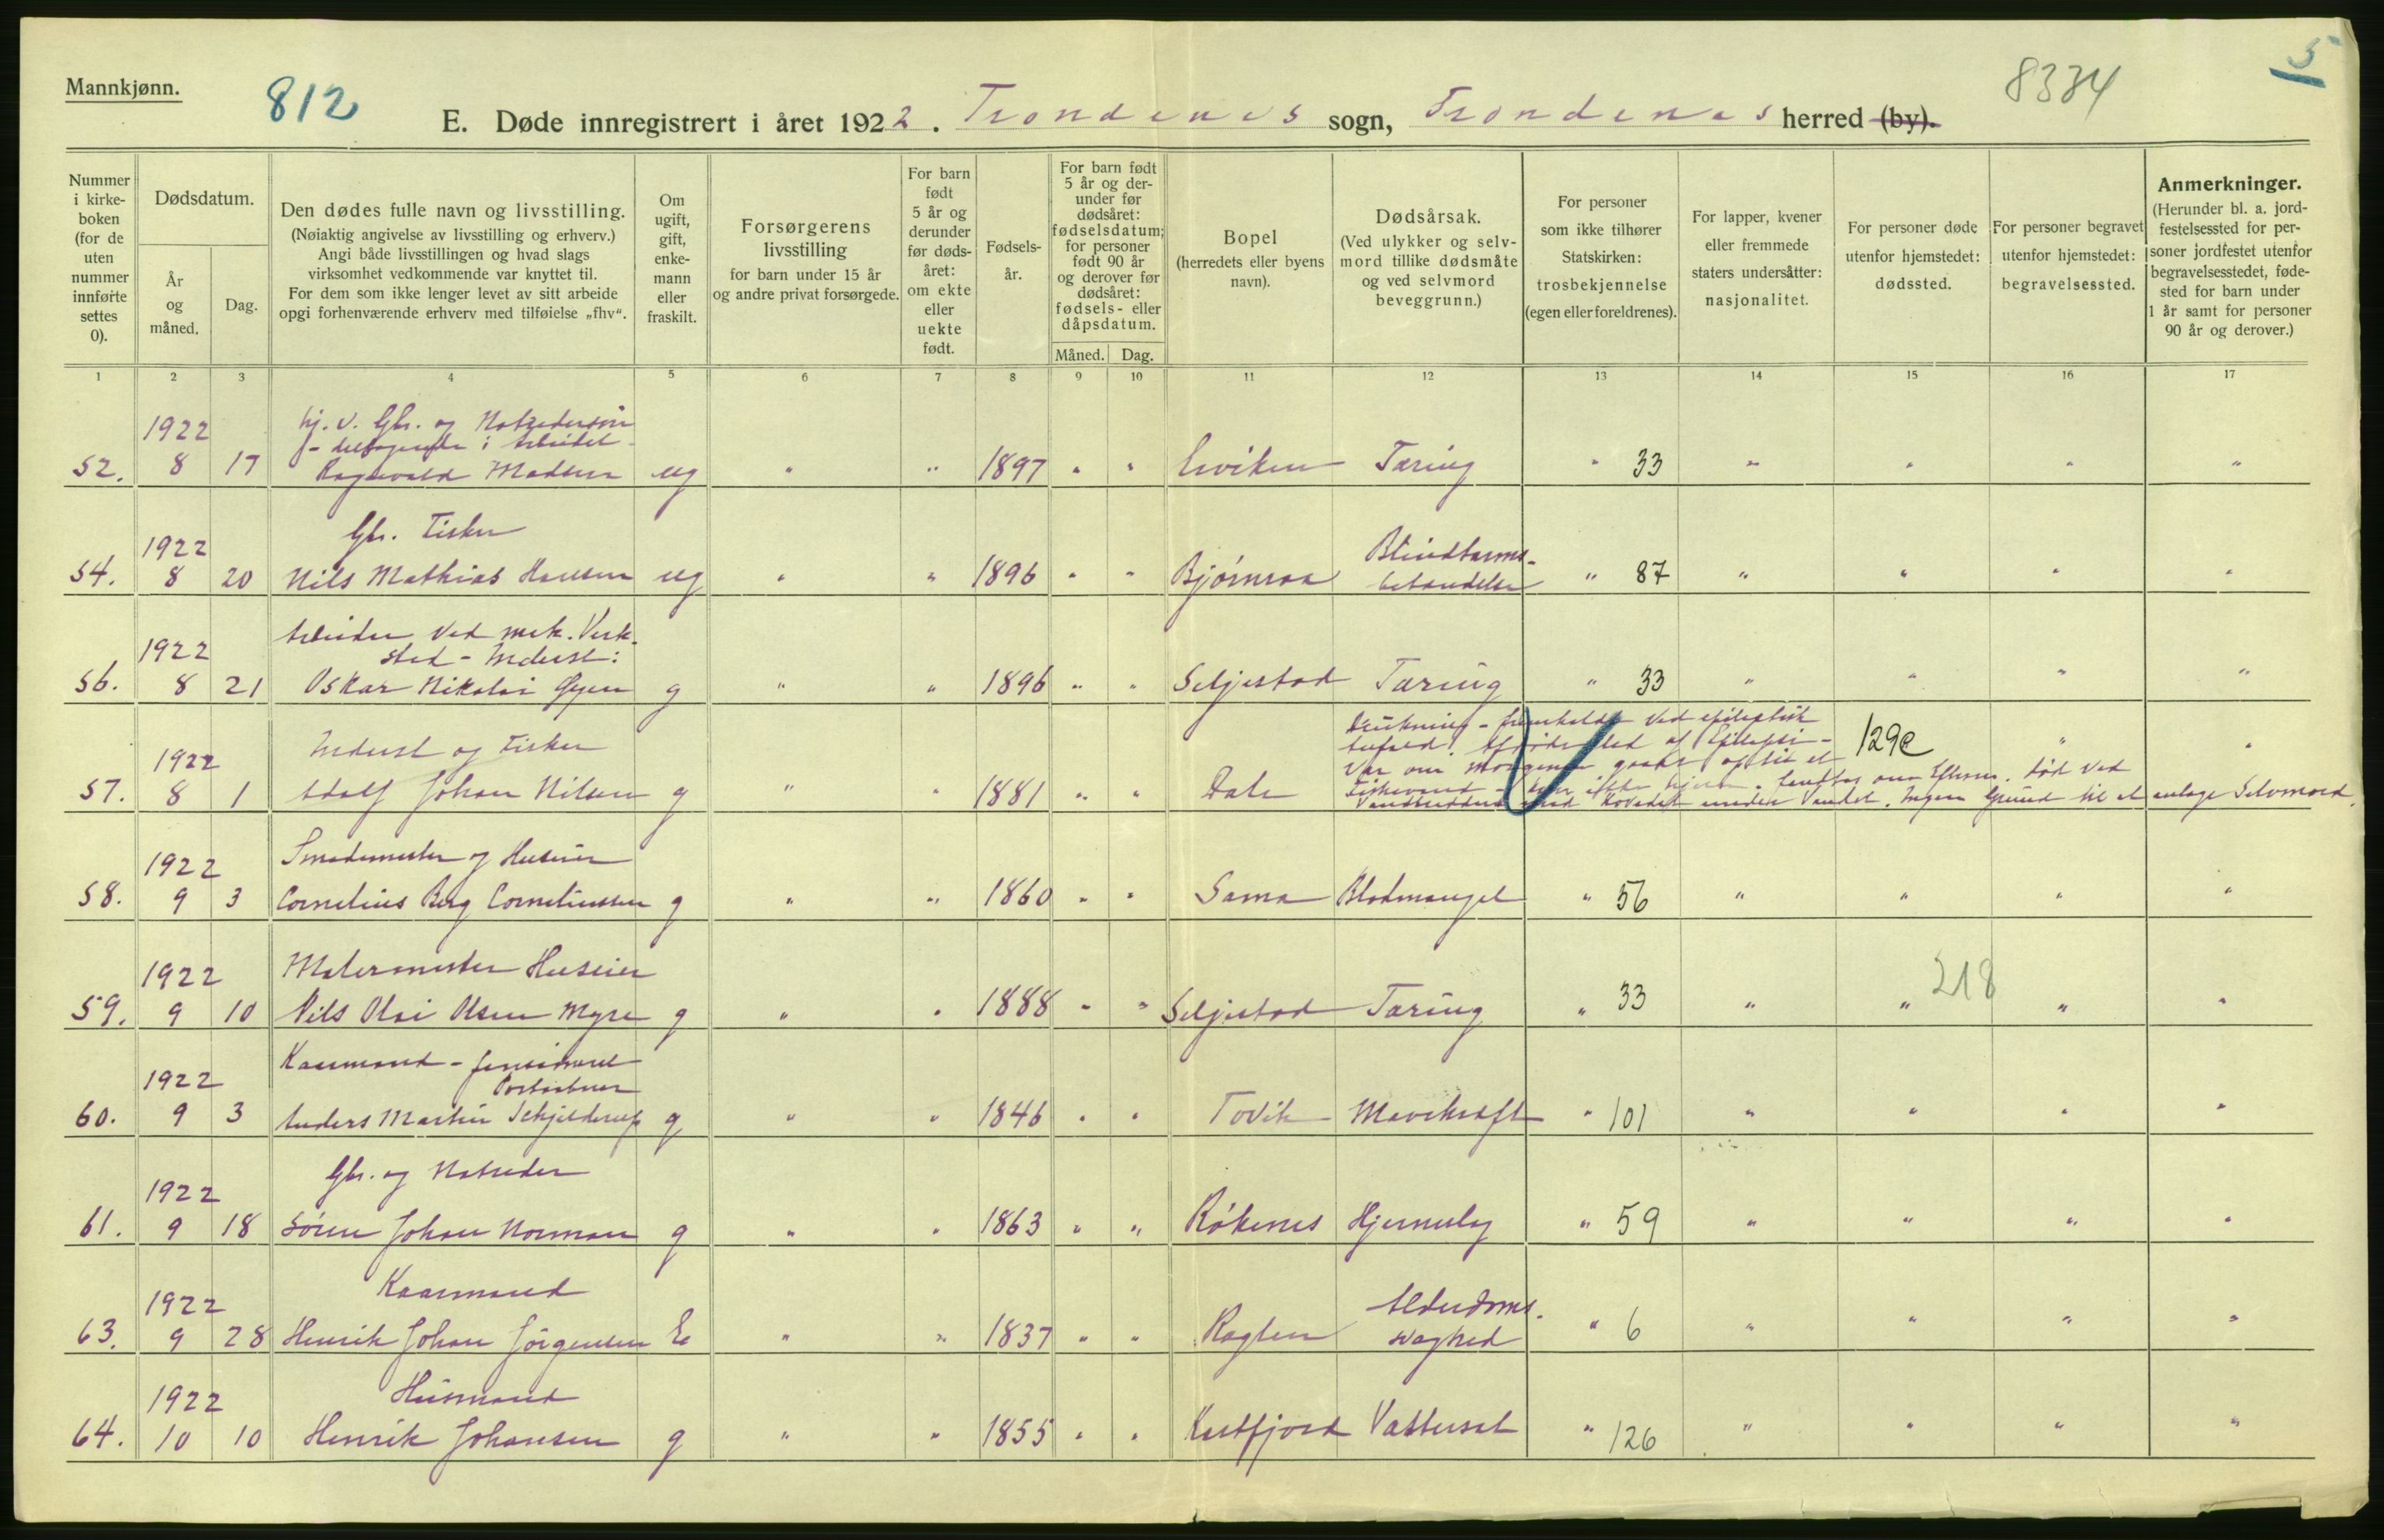 Mannkjønn.
812
8334
5
E. Døde innregistrert i året 1922. Trondenes sogn, Trondenes herred (by).
Nummer i kirke-boken (for de uten nummer innførte settes 0).
Dødsdatum.
År og måned.
Dag.
Den dødes fulle navn og livsstilling.
(Nøiaktig angivelse av livsstilling og erhverv.)
Angi både livsstillingen og hvad slags
virksomhet vedkommende var knyttet til.
For dem som ikke lenger levet av sitt arbeide
opgi forhenværende erhverv med tilføielse „fhv“.
Om ugift, gift, enke-mann eller fraskilt.
Forsørgerens livsstilling
for barn under 15 år
og andre privat forsørgede.
For barn født 5 år og derunder før døds-året: om ekte eller uekte født.
Fødsels-år.
For barn født 5 år og der-under før dødsåret: fødselsdatum; for personer født 90 år og derover før dødsåret: fødsels- eller dåpsdatum.
Måned. Dag.
Bopel
(herredets eller byens navn).
Dødsårsak.
(Ved ulykker og selv-mord tillike dødsmåte og ved selvmord beveggrunn.)
For personer som ikke tilhører Statskirken: trosbekjennelse (egen eller foreldrenes).
For lapper, kvener eller fremmede staters undersåtter: nasjonalitet.
For personer døde utenfor hjemstedet: dødssted.
For personer begravet utenfor hjemstedet: begravelsessted.
Anmerkninger.
(Herunder bl. a. jord-festelsessted for per-soner jordfestet utenfor begravelsesstedet, føde-sted for barn under 1 år samt for personer 90 år og derover.)
1 2 3 4 5 6 7 8 9 10 11 12 13 14 15 16 17
1922 hj. v. Gbr. og
i Arbeidet
52. 8 17 Ragnvald Madsen ug " " 1897 " " Erviken Tæring " 33 " " " "
1922 Gbr. Fisker Blindtarms-
54. 8 20 Nils Mathias Hansen ug " " 1896 " " Bjørnraa betændelse " 87 " " " "
Arbeider ved mek. Verk-
1922 sted - Inderst:
56. 8 21 Oskar Nikolai g " " 1896 " " Seljestad Tæring " 33 " " " "
1922 Inderst og Fisker
57. 8 1 Adolf Johan Nilsen g " " 1881 " " Dale
Drukning - ved epileptisk
Anfald. af Epilepsi -
Var om Morgenen op til et
Fiskevand - ikke hjem. død ved
med Hovedet under Vandet. Ingen Grund til at antage Selvmord.
129e " "
1922 Smedemester og Huseier
58. 9 3 Cornelius Berg Corneliussen g " " 1860 " " Sama Blodmangel " 56 " " " "
1922 Malermester Huseier 218
59. 9 10 Nils Olai Olsen Myre g " " 1888 " " Seljestad Tæring " 33 " " " "
Kaarmand - pensioneret
1922 Postaabner
60. 9 3 Anders Martin Schjelderup g " " 1846 " " Tovik Mavekræft " 101 " " " "
1922 Gbr. og Notreder
61. 9 18 Søren Johan Norman g " " 1863 " " Røkenes Hjerneslag " 59 " " " "
1922 Kaarmand Alderdoms-
63. 9 28 Henrik Johan Jørgensen E " " 1837 " " svaghed " 6 " " " "
1922 Husmand
64. 10 10 Henrik Johansen g " " 1855 " " Kastfjord Vattersot " 126 " " " "